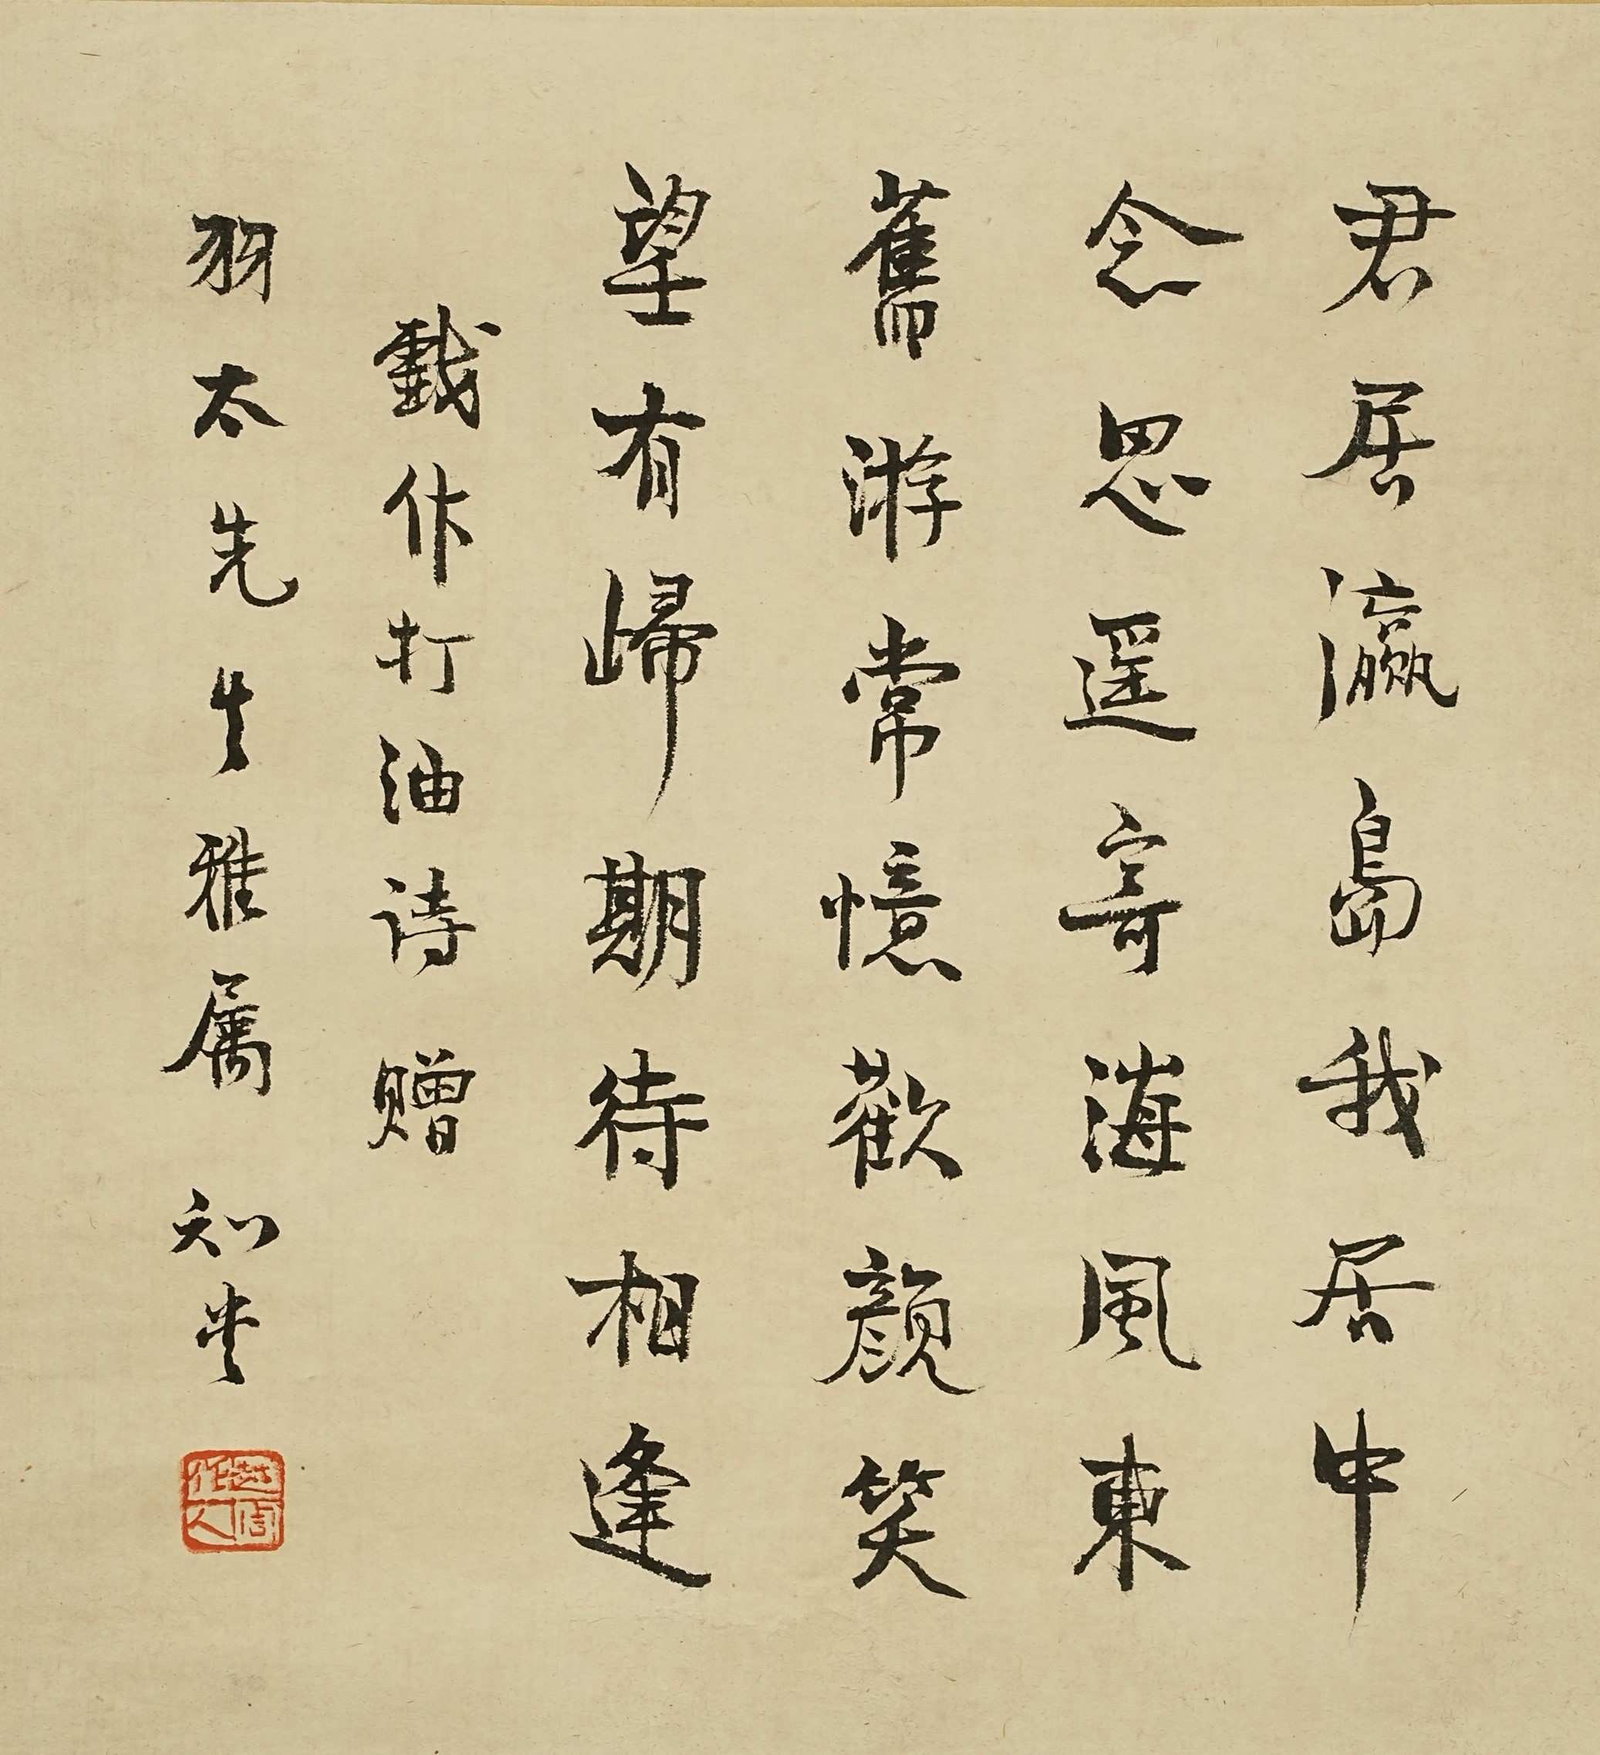 君居瀛島我居中
念思遥寄海風東
舊游常憶歡顔笑
望有歸期待相逢
戲作打油诗 赠
羽太先生雅属 知堂
越周作人